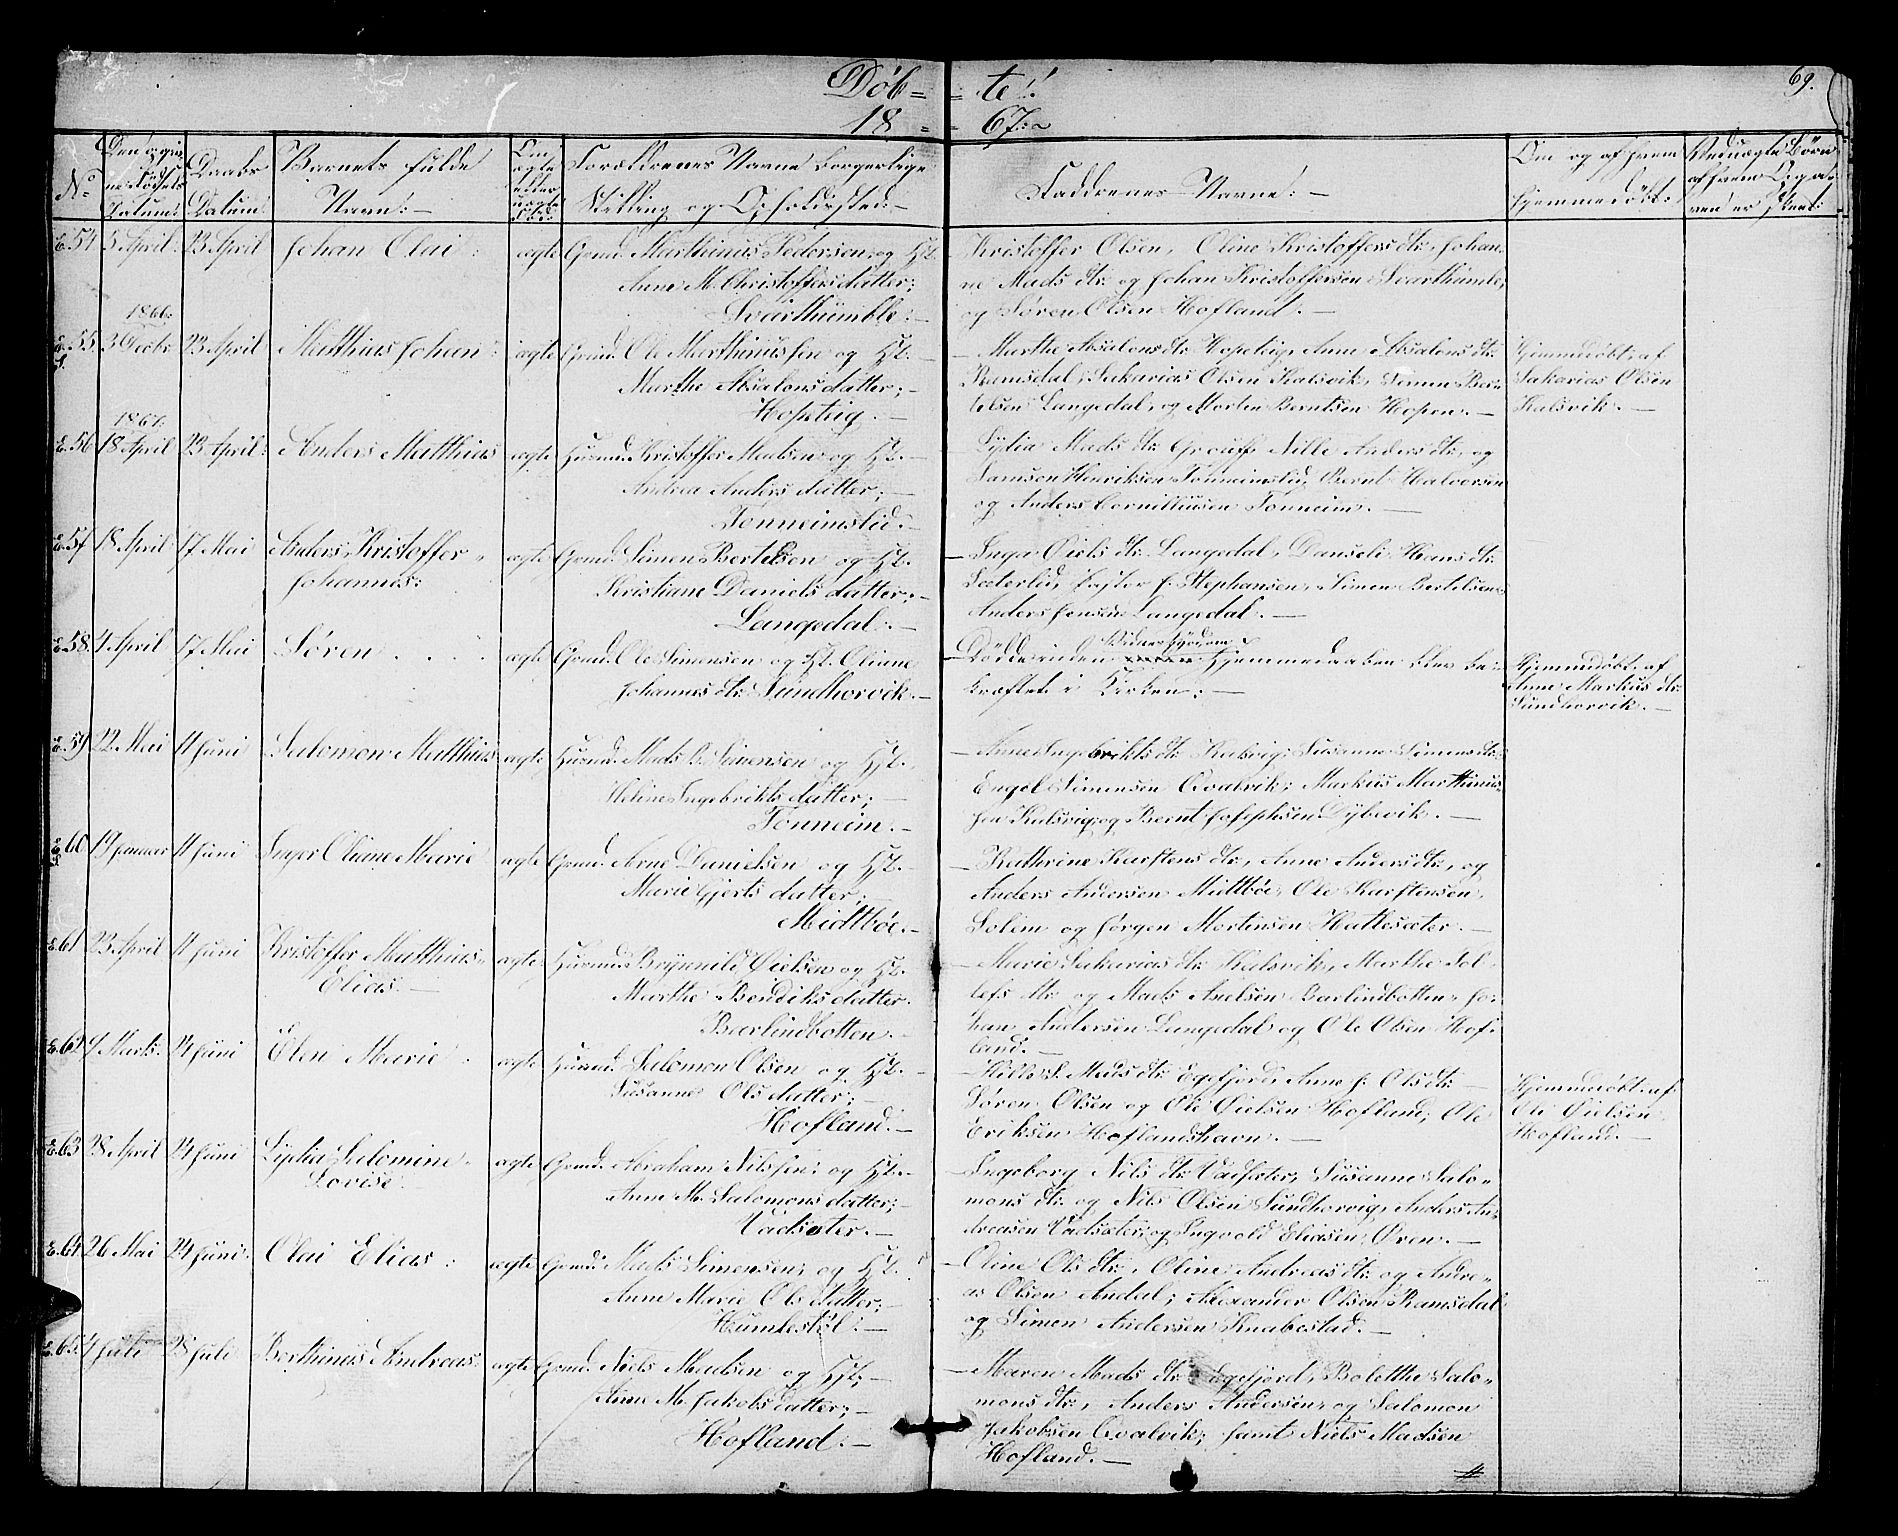 Døb- -te!
69.
18- -67:
No
Den ... ... Fødsels Datum:
Daabs Datum:
Barnets fulde Navn:
Om ægte eller uægte Fød:
Forældrenes Navne borgerlige Stilling og Opholdssted:
Faddrenes Navne:
Om og af hvem hjemmedøbt:
Ved uægte Børn af hvem Opgaven er skeet:
54 5 April 23 April Johan Olai: ægte Grmd. Marthinus Pedersen og H.
Anne M. Christoffersdatter;
Svarthumble:
Kristoffer Olsen, Oline Kristoffers dtr, Johan-
ne Mads dtr og Johan Kristoffersen Svarthumle,
og Søren Olsen Hofland.
1866.
55 3 Decbr 23 April Matthias Johan: ægte Grmd. Ole Marthinussen og H.
Marthe Absalonsdatter;
Hopteig.
Marthe Absalons dtr Hopeteig, Anne Absalons dtr
Ramsdal, Sakarias Olsen Kalsvik, Simen Ber-
telsen Langedal, og Morten Berntsen Hopen.
Hjemmedøbt af
Sakarias Olsen
Kalsvik.
1867.
56 18 April 23 April: Anders Matthias ægte Husmd. Kristoffer Madsen og H.
Andrea Anders datter;
Tonneimslid:
Lydia Mads dtr Grouff, Nille Anders dtr, og
Samson Henriksen Tonneimslid, Bernt Halvorsen
og Anders Cornilliussen Tonneim.
57 18 April 17 Mai Anders Kristoffer
Johannes:
ægte Grmd. Simen Bertelsen og H.
Kristiane Daniels datter;
Langedal:
Inga Øiels dtr Langedal, Danseli Hans dtr
Sæterlid, Kastor J. Stephansen, Simen Bertelsen
Anders Jensen Langedal.
58 4 April 17 Mai Søren ægte Grmd. Ole Simensen og H. Oliane
Johannes dtr Sundhorvik.
Dødde inden Hjemmedaaben blev be-
kræftet i Kirken:
Hjemmedøbt af
Anne Markus dtr
Sundhorvik.
59 22 Mai 11 Juni Salomon Matthias ægte Husmd. Mads B. Simensen og Hst.
Heline Ingebrikts datter;
Tonneim.
Anne Ingebrikts dtr Kalsvig, Susanne Simens dtr
Engel Simensen Qvalvik; Markus Marthinus-
sen Kalsvig og Bernt Josephsen Dybevik.
60 19 Januar 11 Juni Inger Oliane Marie ægte Grmd. Arne Danielsen og Hst.
Marie Gjerts datter;
Midtbøe.
Kathrine Karstens dtr, Anne Anders dtr, og
Anders Andersen Midtbøe, Ole Karstensen,
Solem og Jørgen Mortinsen Hattesæter.
61 23 April 11 Juni Kristoffer Matthias
Elias.
ægte Husmd. Brynnild Øielsen og H.
Marthe Bendiks datter.
Barlindbotten.
Marie Sakarias dtr Kalsvik, Marthe Tol-
lefs dtr og Mads Axelsen Barlindbotten, Jo-
han Andersen Langedal og Ole Olsen Hof-
land.
62 9 Marts 24 Juni Elen Marie ægte Husmd. Salomon Olsen og Hst.
Susanne Ols datter;
Hofland.
Nille S. Mads dtr Egefjord, Anne J. Ols dtr
Søren Olsen og Ole Øielsen Hofland, Ole
Eriksen Hoflandshavn.
Hjemmedøbt af
Ole Øielsen
Hofland.
63 28 April 24 Juni Lydia Salomine
Lovise
ægte Grmd. Abraham Nilssen og Hst.
Anne M. Salomons datter;
Vadsæter.
Ingeborg Nils dtr Vadsæter, Susanne Salo-
mons dtr og Nils Olsen Sundhorvig, Anders An-
dreasen Vadsæter, og Ingvold Eliasen Øren.
64 26 Mai 24 Juni Olai Elias: ægte Grmd: Mads Simensen og Hst.
Anne Marie Ols datter;
Humlestøl:
Oline Ols dtr, Oline Andreas dtr og Andre-
as Olsen Aadal; Alexander Olsen Ramsdal
og Simon Andersen Knabestad.
65 4 Juli 28 Juli Berthinus Andreas: ægte Grmd. Niels Madsen og Hst.
Anne M. Jakobs datter;
Hofland.
Maren Mads dtr Egefjord, Bolethe Salo-
mons dtr, Anders Andersen og Salomon
Jakobsen Qvalvik; samt Niels Madsen
Hofland.